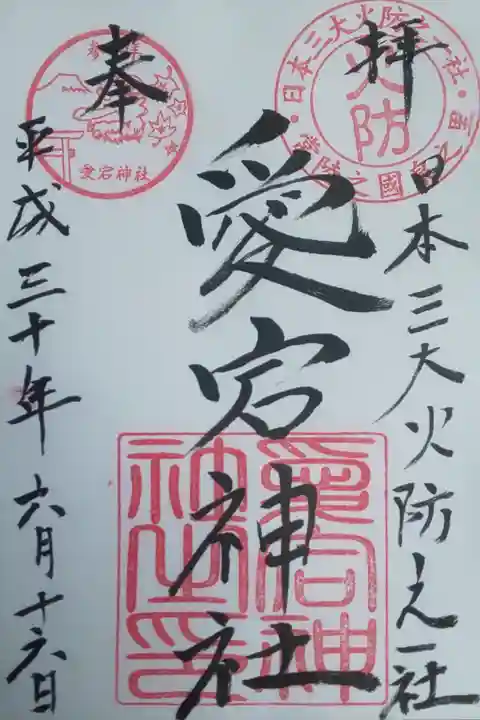 奉拝
日本三大火防之一社
愛宕神社
平成三十年六月十六日
火防
日本三大火防之一社
愛宕神社
愛宕神社之印